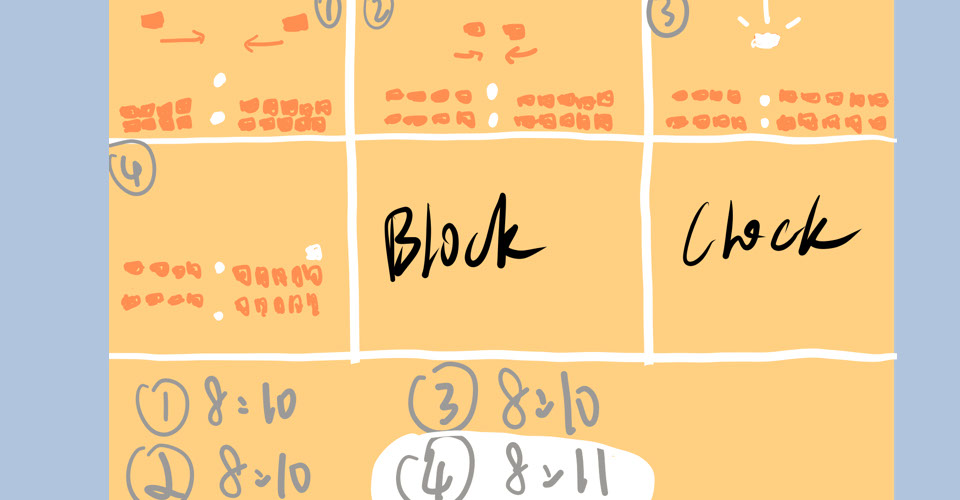 ① ② ③
④ Block Clock
① 8:10 ③ 8:10
② 8:10 ④ 8:11